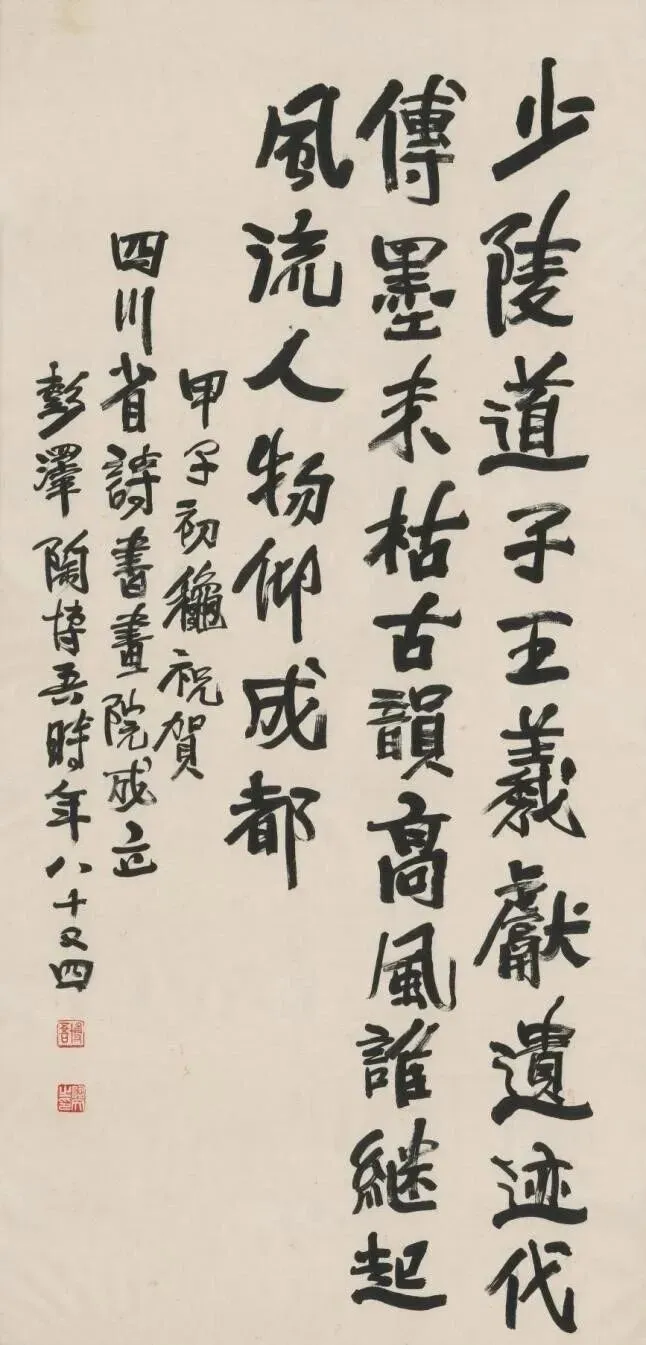 少陵道子王羲獻遺迹代
傳墨未枯古韻高風誰継起
風流人物仰成都
甲子初龝祝賀
四川省詩書畫院成立
彭澤陶博吾時年八十又四